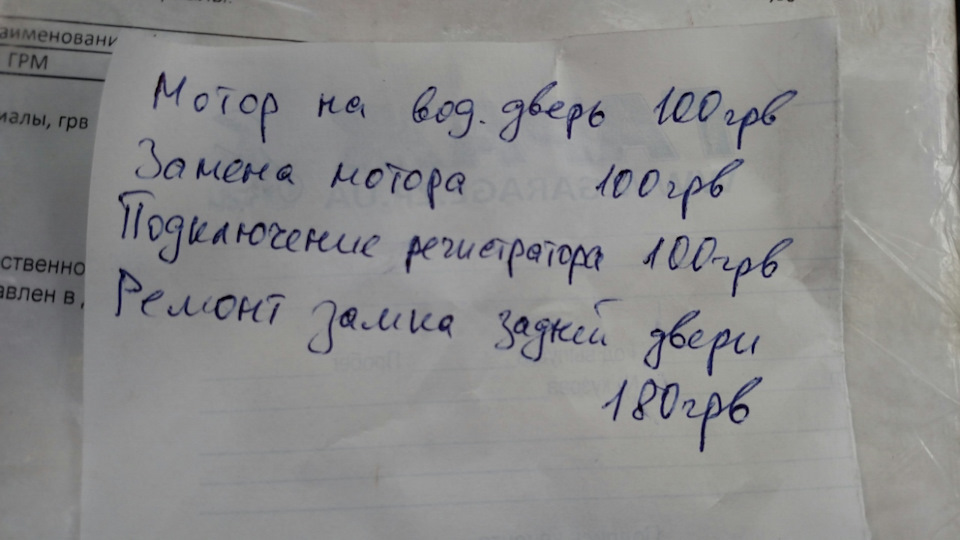 аименовани
ГРМ
иалы, грв
ственно
авлен в
Мотор на вод. дверь 100грв
Замена мотора 100грв
Подключение регистратора 100грв
Ремонт замка задней двери
180грв